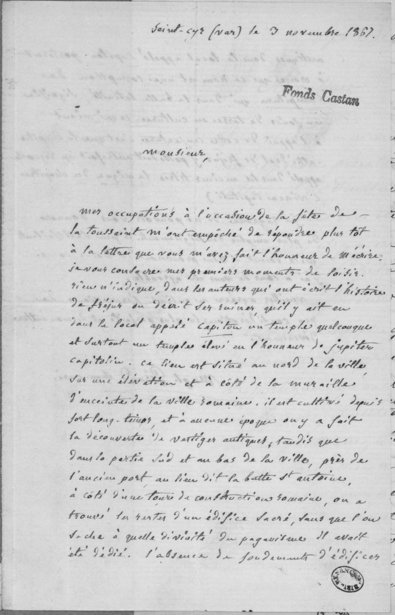 Saint-Cyr (var) le 3 novembre 1867.
Fonds Castan
monsieur,
mes occupations à l'occasion de la fête de
la toussaint m'ont empêché de répondre plus tôt
à la lettre que vous m'avez fait l'honneur de m'écrire.
je vous consacre mes premiers moments de loisir.
rien n'indique, dans les auteurs qui ont écrit l'histoire
de fréjus ou décrit ses ruines, qu'il y ait eu
dans le local appelé capitou un temple quelconque
et surtout un temple élevé en l'honneur de jupiter
capitolin. ce lieu est situé au nord de la ville
sur une élévation et à côté de la muraille
d'enceinte de la ville romaine. il est cultivé depuis
fort long-temps, et à aucune époque on y a fait
la découverte de vestiges antiques, tandis que
dans la partie sud et au bas de la ville, près de
l'ancien port au lieu dit la butte St antoine,
à côté d'une tour de construction romaine, on a
trouvé les restes d'un édifice sacré, sans que l'on
sache à quelle divinité du paganisme il avait
été dédié. l'absence de fondements d'édifices